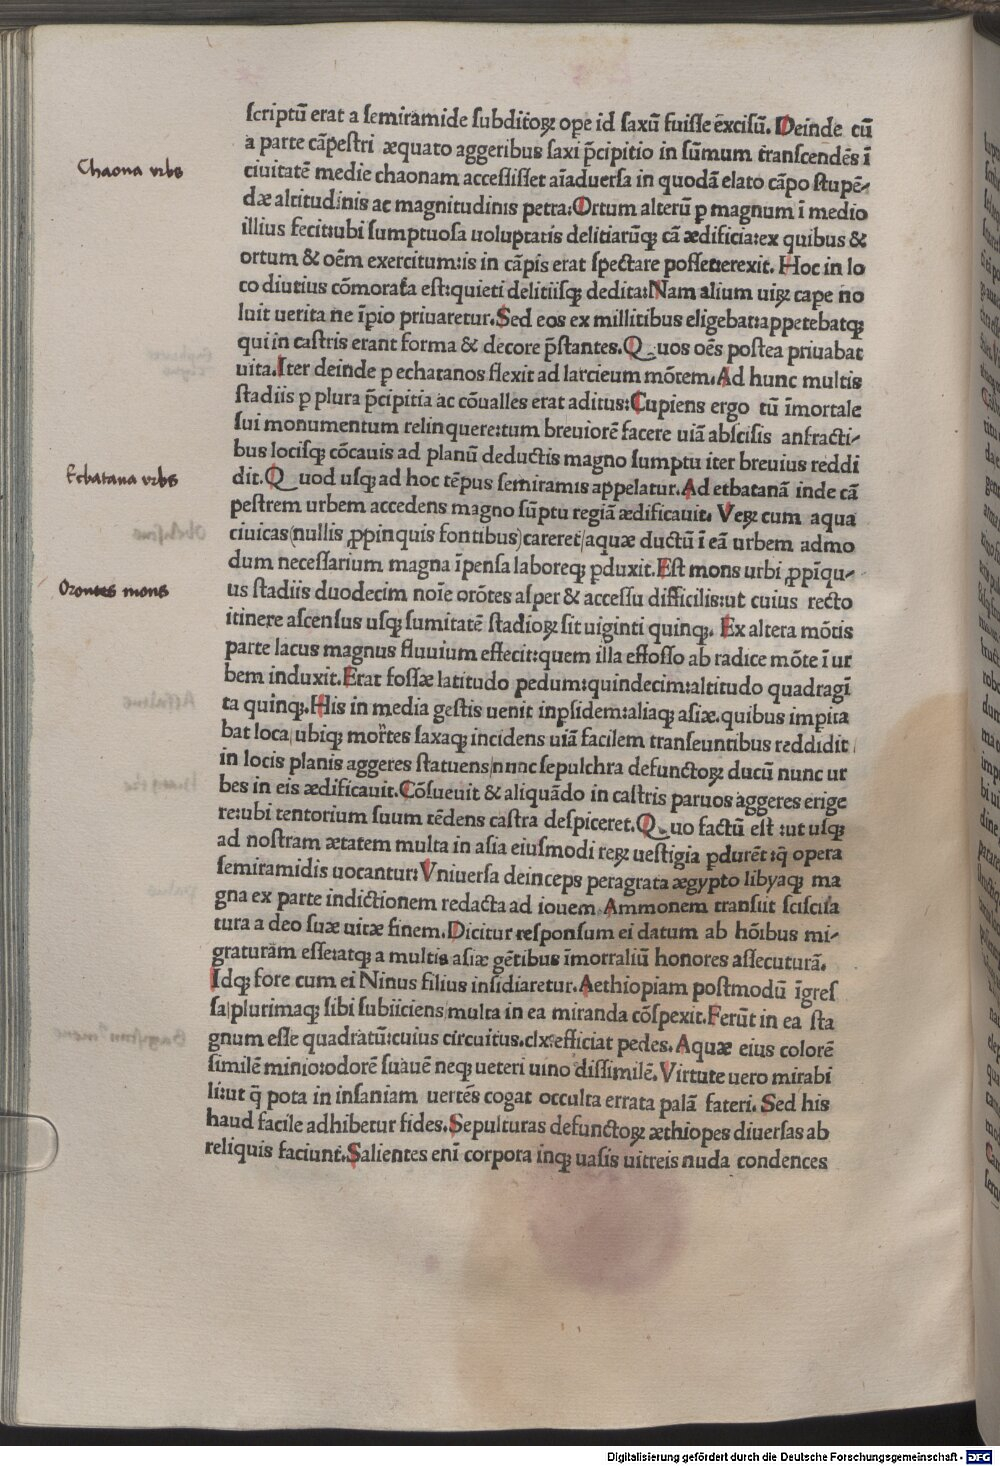 scriptū erat a semiramide subditoꝝ ope id saxū fuisse excisū. Deinde cū
a parte cāpestri æquato aggeribus saxi p̄cipitio in sūmum transcendēs ī
Chaona vrbs
ciuitatē medie chaonam accessisset aīaduersa in quodā elato cāpo stupē-
dæ altitudinis ac magnitudinis petra: Ortum alterū ꝑ magnum ī medio
illius fecit: ubi sumptuosa uoluptatis delitiarūqꝫ cā ædificia: ex quibus &
ortum & oēm exercitum: is in cāpis erat spectare posset erexit. Hoc in lo
co diutius cōmorata est: quieti delitiisqꝫ dedita: Nam alium uiꝝ cape no
luit uerita ne īpio priuaretur. Sed eos ex millitibus eligebat: appetebatqꝫ
qui in castris erant forma & decore p̄stantes. Quos oēs postea priuabat
uita. Iter deinde ꝑ echatanos flexit ad larcieum mōtem. Ad hunc multis
stadiis ꝑ plura p̄cipitia ac cōualles erat aditus: Cupiens ergo tū īmortale
sui monumentum relinquere: tum breuiorē facere uiā abscisis anfracti-
bus locisqꝫ cōcauis ad planū deductis magno sumptu iter breuius reddi
Ecbatana vrbs
dit. Quod usqꝫ ad hoc tēpus semiramis appelatur. Ad etbatanā inde cā
pestrem urbem accedens magno sūptu regiā ædificauit. Veꝝ cum aqua
ciuicas (nullis ꝓpinquis fontibus) careret/aquæ ductū ī eā urbem admo
dum necessarium magna īpensa laboreqꝫ ꝑduxit. Est mons urbi ꝓpīqu-
Orontes mons
us stadiis duodecim noīe orōtes asper & accessu difficilis: ut cuius recto
itinere ascensus usqꝫ sumitatē stadioꝝ sit uiginti quinqꝫ. Ex altera mōtis
parte lacus magnus fluuium effecit: quem illa effosso ab radice mōte ī ur
bem induxit. Erat fossæ latitudo pedum: quindecim: altitudo quadragī
ta quinqꝫ. His in media gestis uenit inpsidem: aliaqꝫ asiæ. quibus impita
bat loca/ubiqꝫ mōtes saxaqꝫ incidens uiā facilem transeuntibus reddidit/
in locis planis aggeres statuens/nunc sepulchra defunctoꝝ ducū nunc ur
bes in eis ædificauit. Cōsueuit & aliquādo in castris paruos aggeres erige
re: ubi tentorium suum tēdens castra despiceret. Quo factū est: ut usqꝫ
ad nostram ætatem multa in asia eiusmodi reꝝ uestigia ꝑdurēt: q̄ opera
semiramidis uocantur: Vniuersa deinceps peragrata ægypto libyaqꝫ ma
gna ex parte indictionem redacta ad iouem Ammonem transiit sciscita
tura a deo suæ uitæ finem. Dicitur responsum ei datum ab hōibus mi-
graturam esse: atqꝫ a multis asiæ gētibus īmortaliū honores assecuturā.
Idqꝫ fore cum ei Ninus filius insidiaretur. Aethiopiam postmodū īgres
sa/plurimaqꝫ sibi subiiciens/multa in ea miranda cōspexit. Ferūt in ea sta
gnum esse quadratū: cuius circuitus. clx. efficiat pedes. Aquæ eius colorē
similē minio: odorē suauē neqꝫ ueteri uino dissimilē. Virtute uero mirabi
li: ut q̄ pota in insaniam uertēs cogat occulta errata palā fateri. Sed his
haud facile adhibetur fides. Sepulturas defunctoꝝ æthiopes diuersas ab
reliquis faciunt. Salientes enī corpora inqꝫ uasis uitreis nuda condences
Digitalisierung gefördert durch die Deutsche Forschungsgemeinschaft - DFG